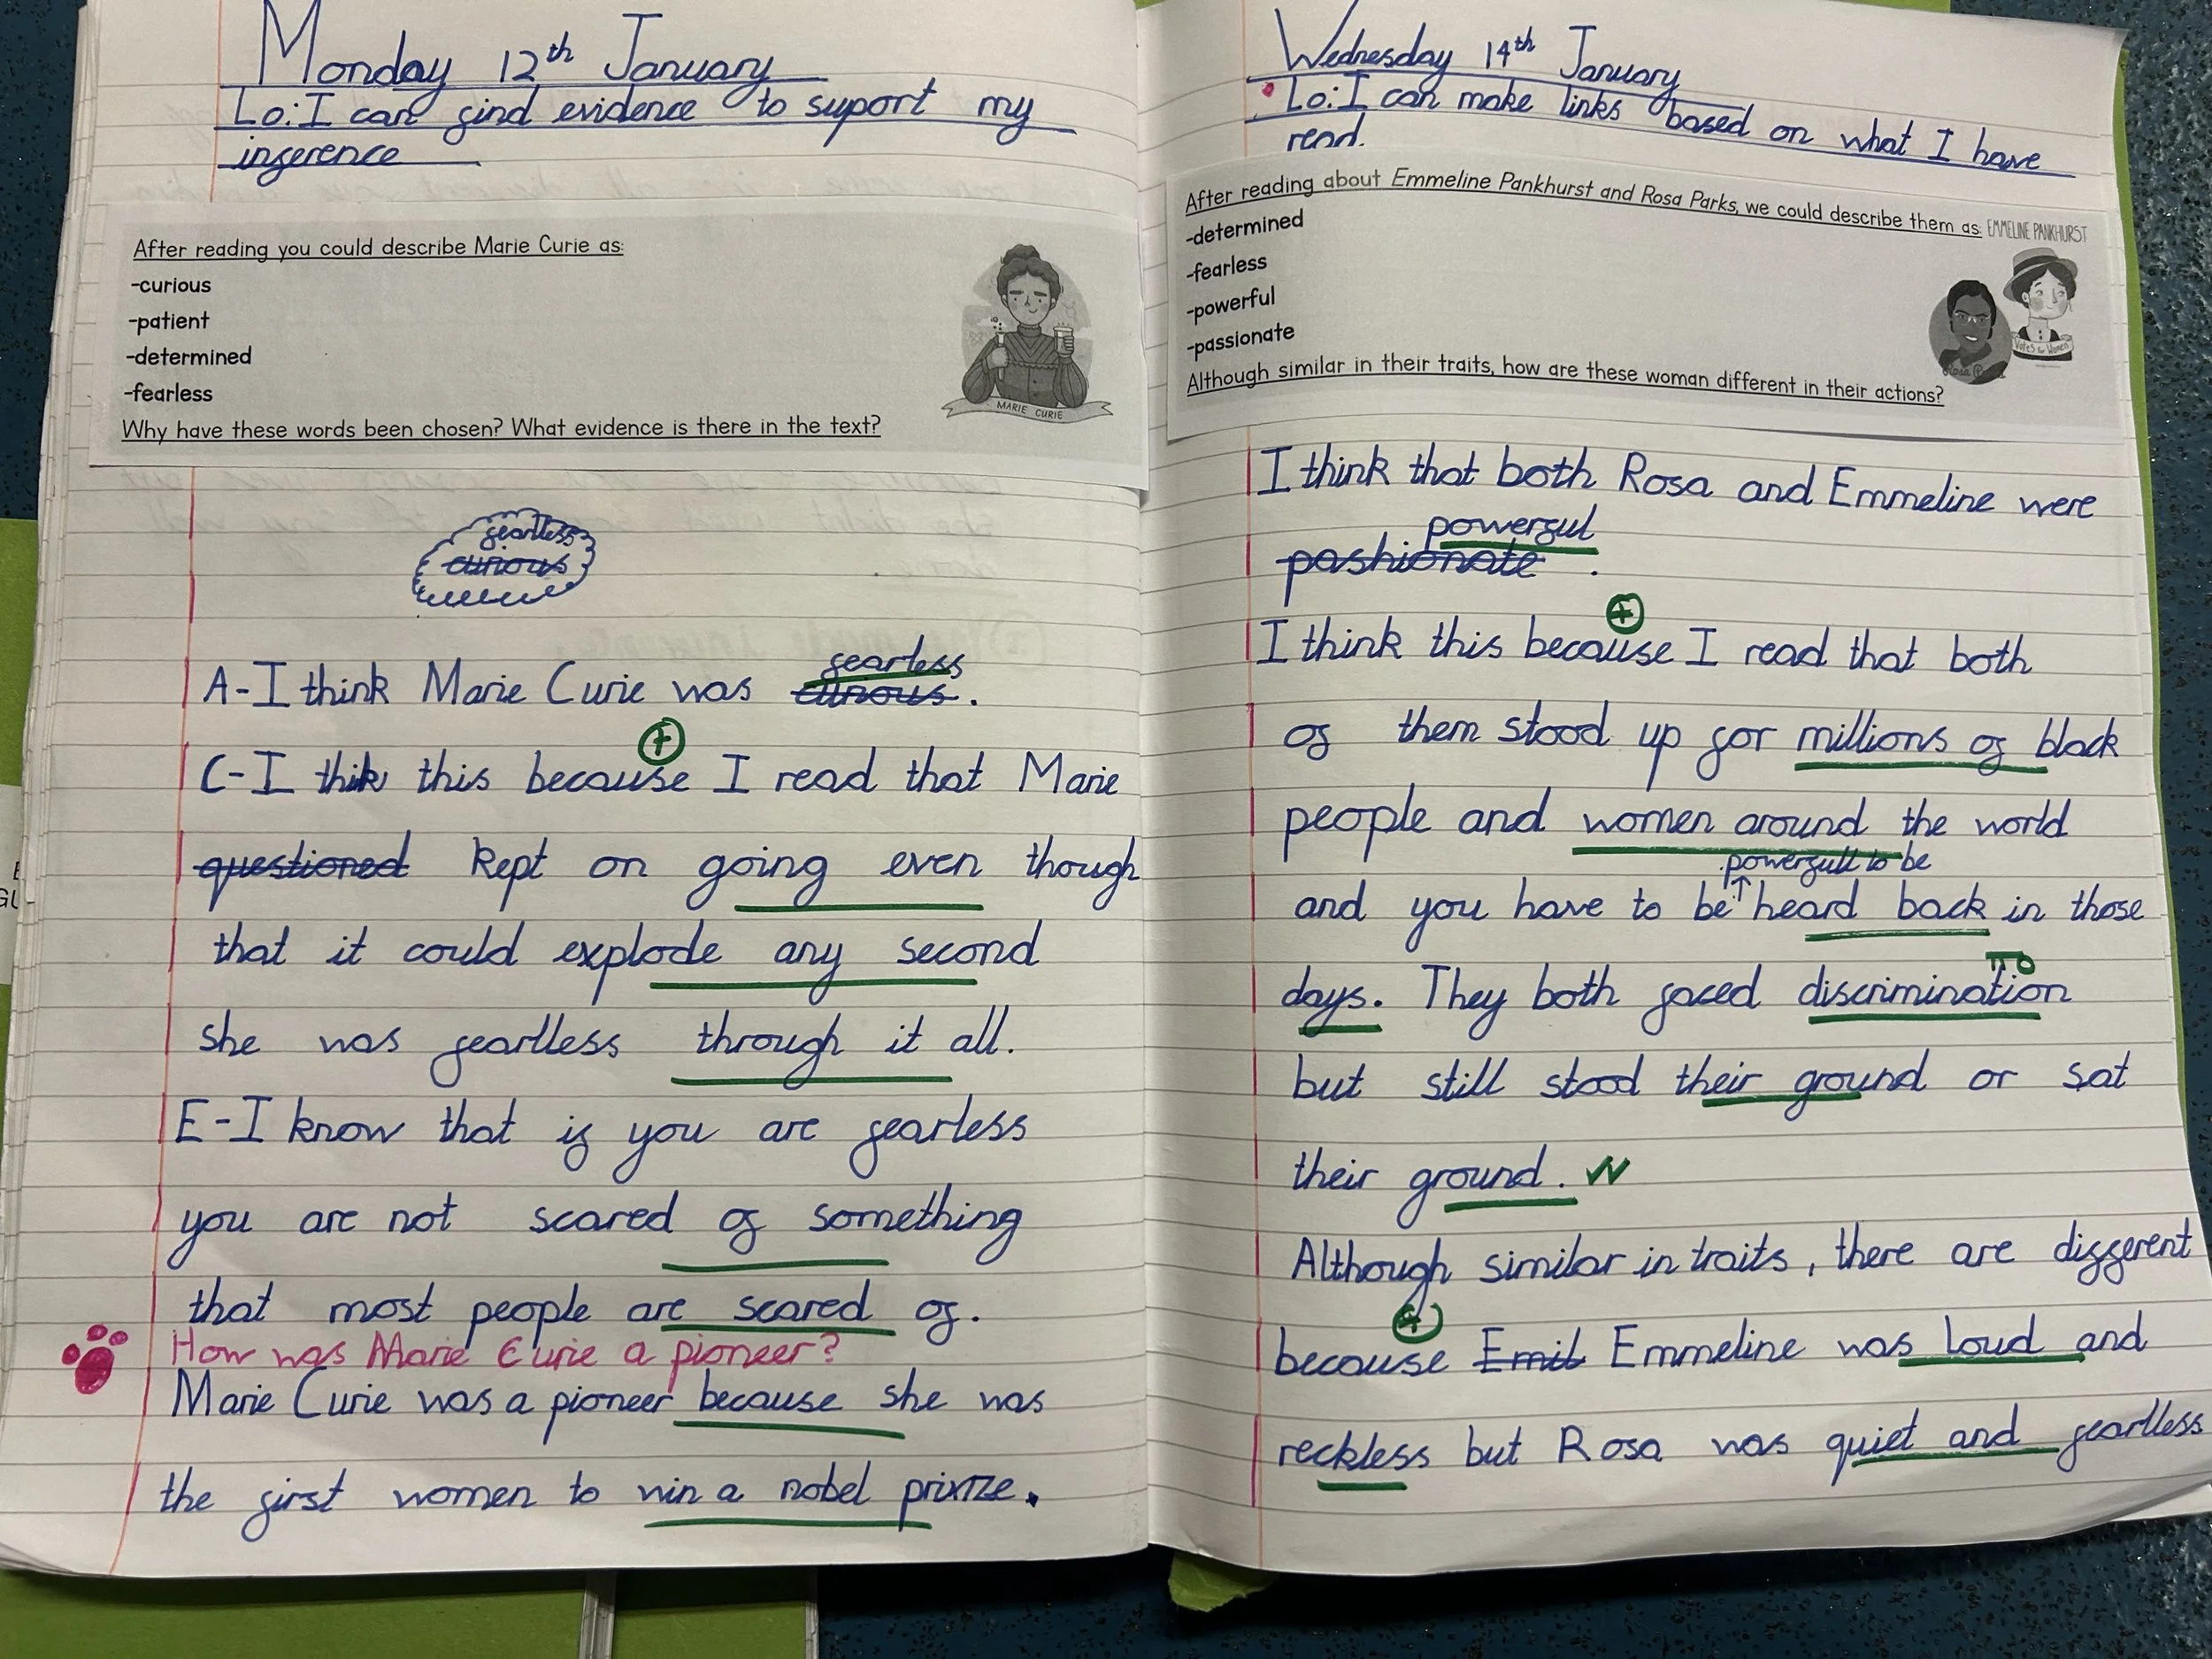 Monday 12th January
Lo: I can find evidence to suport my
inference
After reading you could describe Marie Curie as:
-curious
-patient
-determined
-fearless
Why have these words been chosen? What evidence is there in the text?
MARIE CURIE
fearless
curious
fearless
A-I think Marie Curie was curious.
C-I think this because I read that Marie
questioned kept on going even though
that it could explode any second
she was fearless through it all.
E-I know that if you are fearless
you are not scared of something
that most people are scared of.
How was Marie Curie a pioneer?
Marie Curie was a pioneer because she was
the first women to win a nobel
Wednesday 14th January
Lo: I can make links based on what I have
read.
After reading about Emmeline Pankhurst and Rosa Parks, we could describe them as:
EMMELINE PANKHURST
-determined
-fearless
-powerful
-passionate
Votes for Women
Although similar in their traits, how are these woman different in their actions?
I think that both Rosa and Emmeline were
powerful
pashionate.
I think this because I read that both
of them stood up for millions of black
people and women around the world
powerfull to be
and you have to be heard back in those
days. They both faced discrimination
but still stood their ground or sat
their ground.
Although similar in traits, there are different
because Emil Emmeline was loud and
reckless but Rosa was quiet and fearless